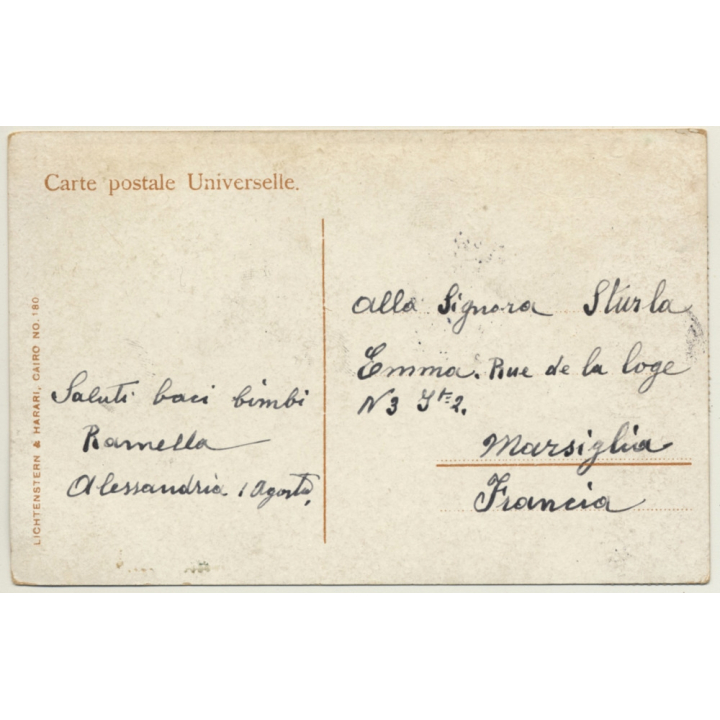 Carte postale Universelle.
LICHTENSTERN & HARARI, CAIRO NO. 180
Saluti baci bimbi
Ramella
Alessandria 1 Agosto
Alla Signora Sturla
Emma. Rue de la loge
N 3
Marsiglia
Francia